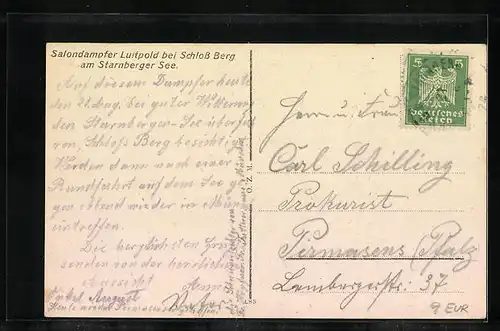 Salondampfer Luitpold bei Schloß Berg
am Starnberger See.
Auf diesem Dampfer heute
den 21. Aug. bei guter Witterung
den Starnberger-See überfah
ren, Schloss Berg besichtigt
Werden dann nach einer
Rundfahrt auf dem See ge
gen abend wieder in Münc
eintreffen.
Die herzlichsten Grüsse
senden von der herrlichen
Aussicht
Onkel August
O. Z. M.
Deutsches
Reich
5
5
Herrn u. Frau
Carl Schilling
Prokurist
Pirmasens (Pfalz)
Lembergerstr. 37
9 EUR